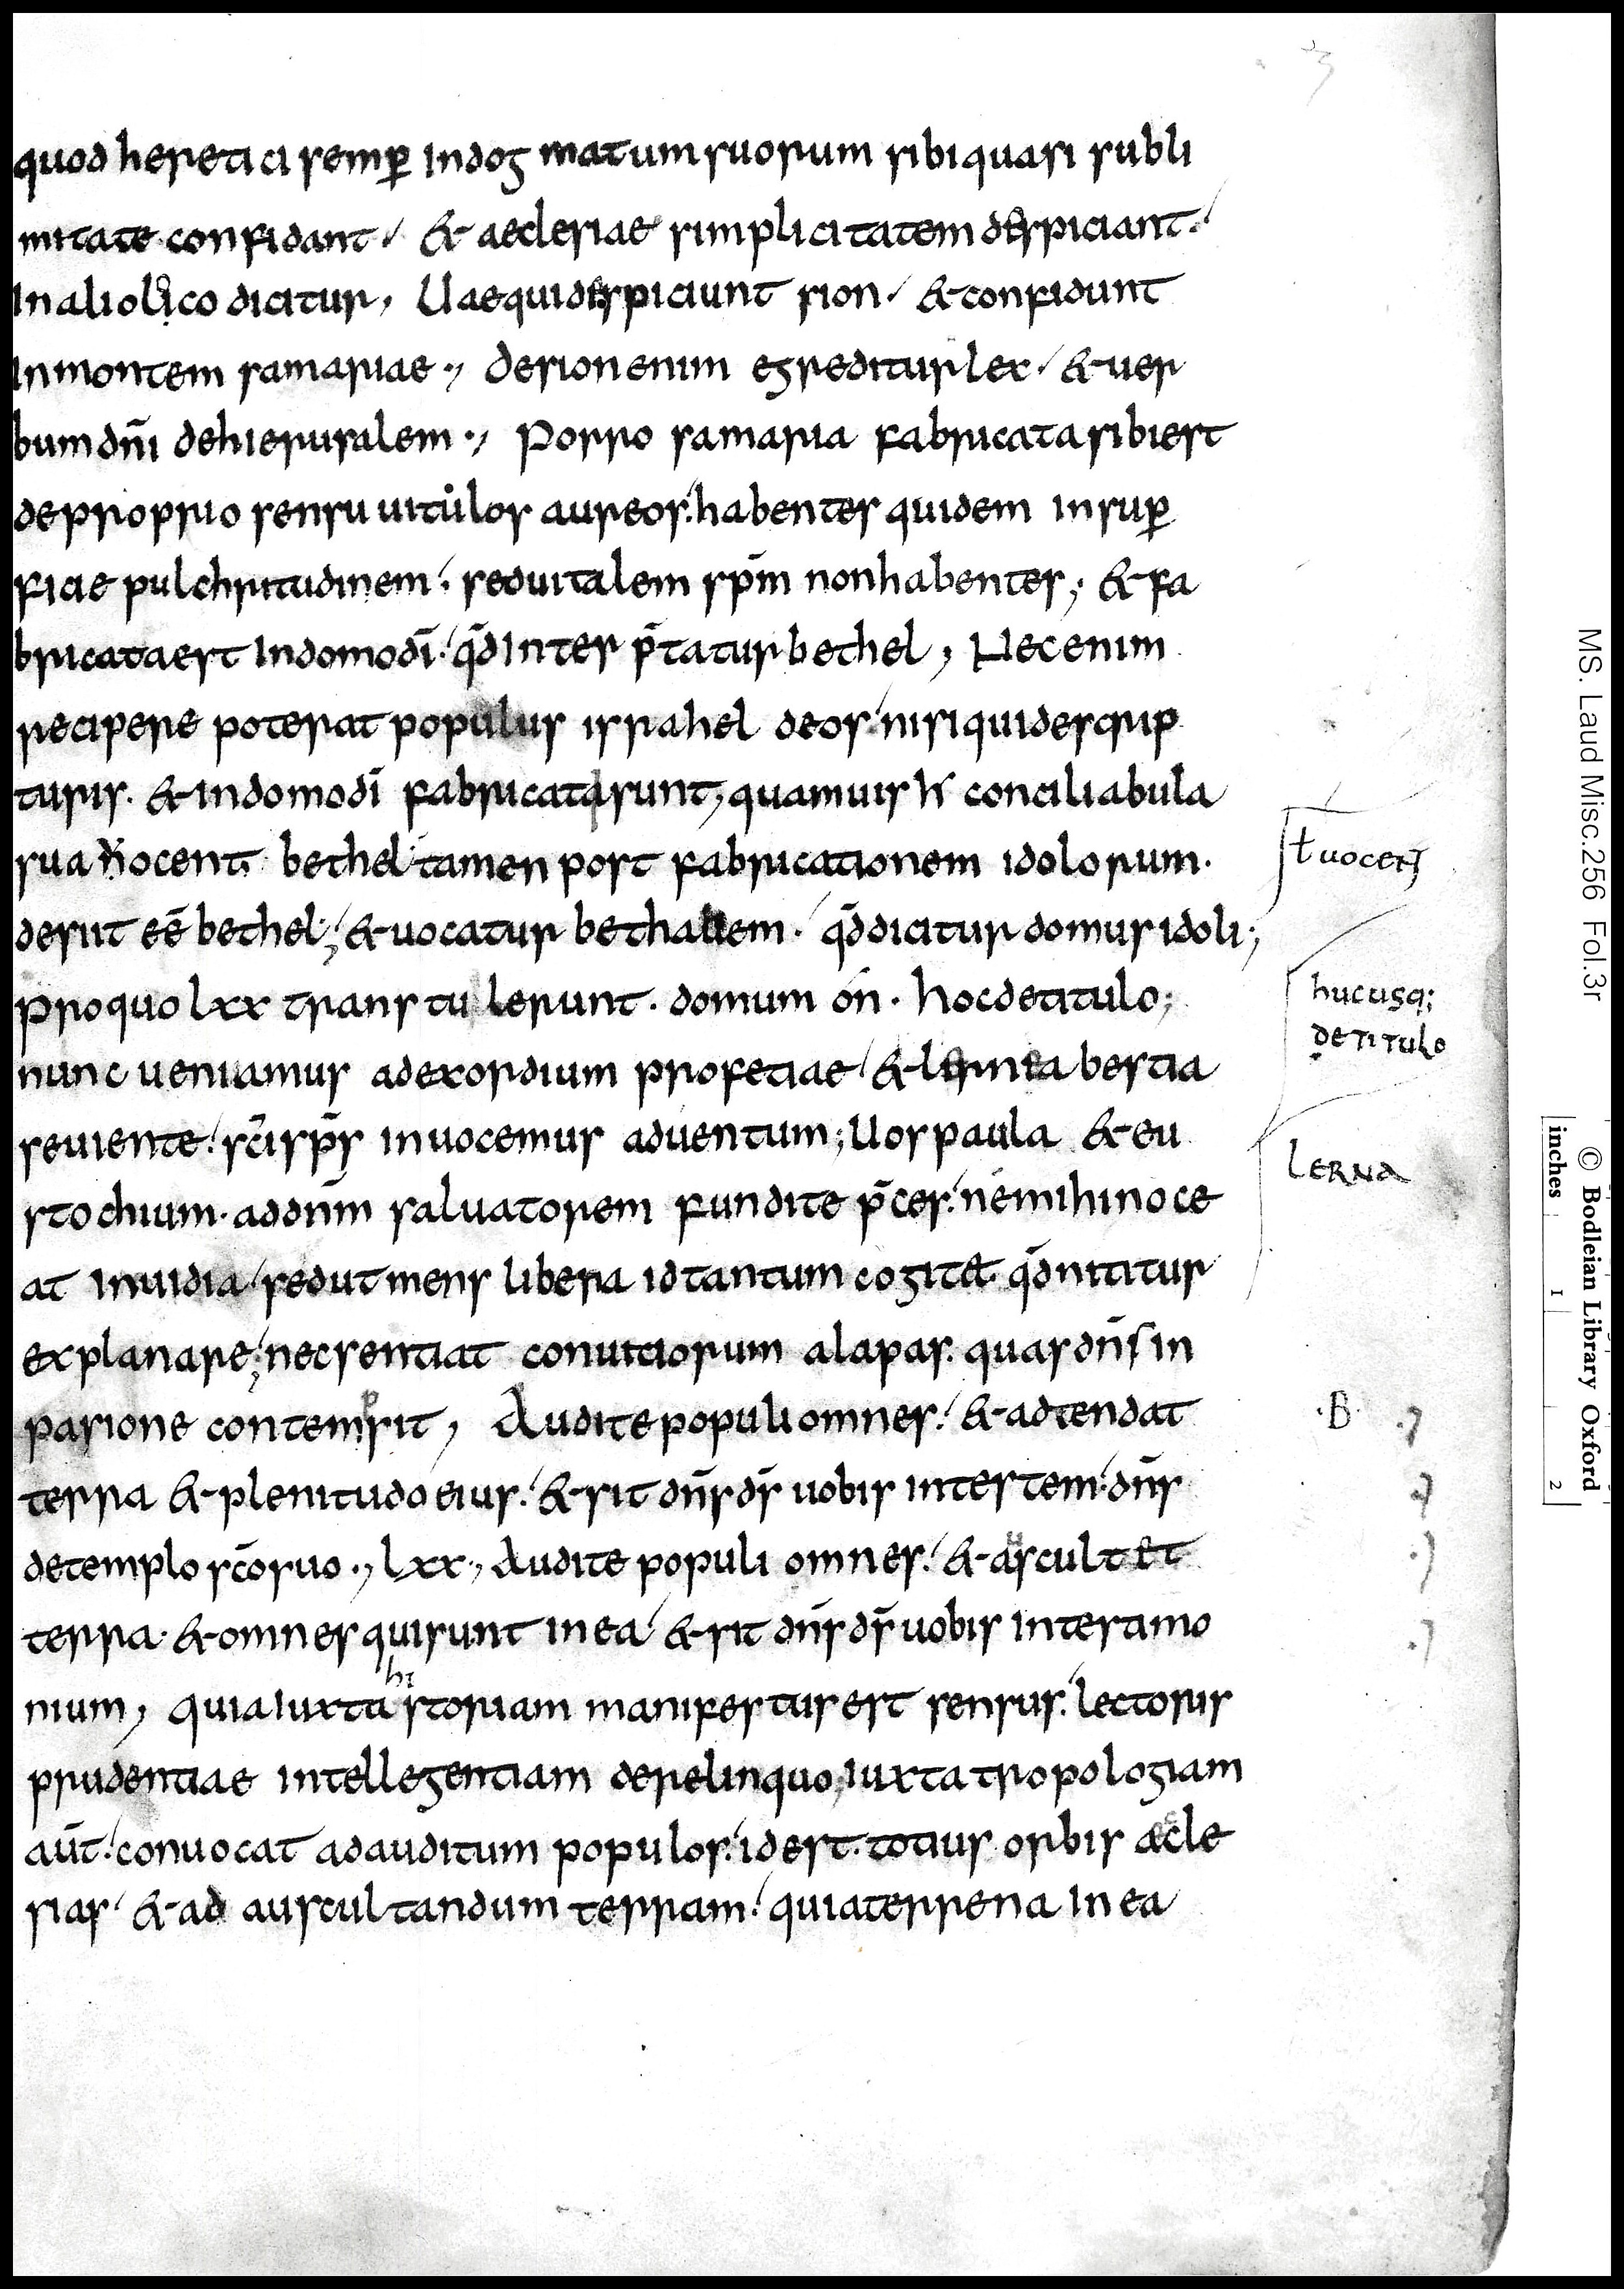 quod heretici semꝑ indogmatum suorum sibi quasi subli
mitate confidant. & aeclesiae simplicitatem despiciant.
In alio loco dicitur, Uae qui despiciunt sion. & confidunt
In montem samariae., de sion enim egreditur lex. & uer
bum dn̄i de hierusalem., Porro samaria fabricata sibi est
de proprio sensu uitulos aureos. habentes quidem in suꝑ
ficie pulchritudinem. sed uitalem sp̄m non habentes; & fa
bricata est In domo dī. qd̄ Inter p̄tatur bethel, Nec enim
recipere poterat populus israhel deos. nisi qui de scrip
turis. & in domo dī fabricata sunt, quamuis h conciliabula
sua nocent bethel. tamen post fabricationem idolorum.
desiit eē bethel; & uocatur bethauem. qd̄ dicitur domus idoli;
pro quo lxx transtulerunt. domum ón. hoc de titulo;
nunc ueniamus ad exordium profetiae. & lernea bestia
seuiente. sc̄i sp̄s inuocemus aduentum; Uos paula & eu
stochium. ad dn̄m saluatorem fundite p̄ces. né mihi noce
at inuidia. sed ut mens libera id tantum cogitet. qd̄ nititur
explanare; nec sentiat conuiciorum alapas. quas dn̄s in
pasione contempsit, Audite populi omnes. & adtendat
terra & plenitudo eius. & sit dn̄s ds̄ uobis in testem. dn̄s
de templo sc̄o suo., lxx, Audite populi omnes. & auscultet
terra. & omnes qui sunt in ea. & sit dn̄s ds̄ uobis in testimo
nium, quia iuxta historiam manifestus est sensus. lectoris
prudentiae intellegentiam derelinquo; iuxta tropologiam
aut̄. conuocat ad auditum populos. id est. totius orbis aecle
sias. & ad auscultandum terram. quia terrena in ea
ł uocent
hucusq;
de titulo
LERNA
.B.
MS. Laud Misc.256 Fol.3r
© Bodleian Library Oxford
inches 1 2